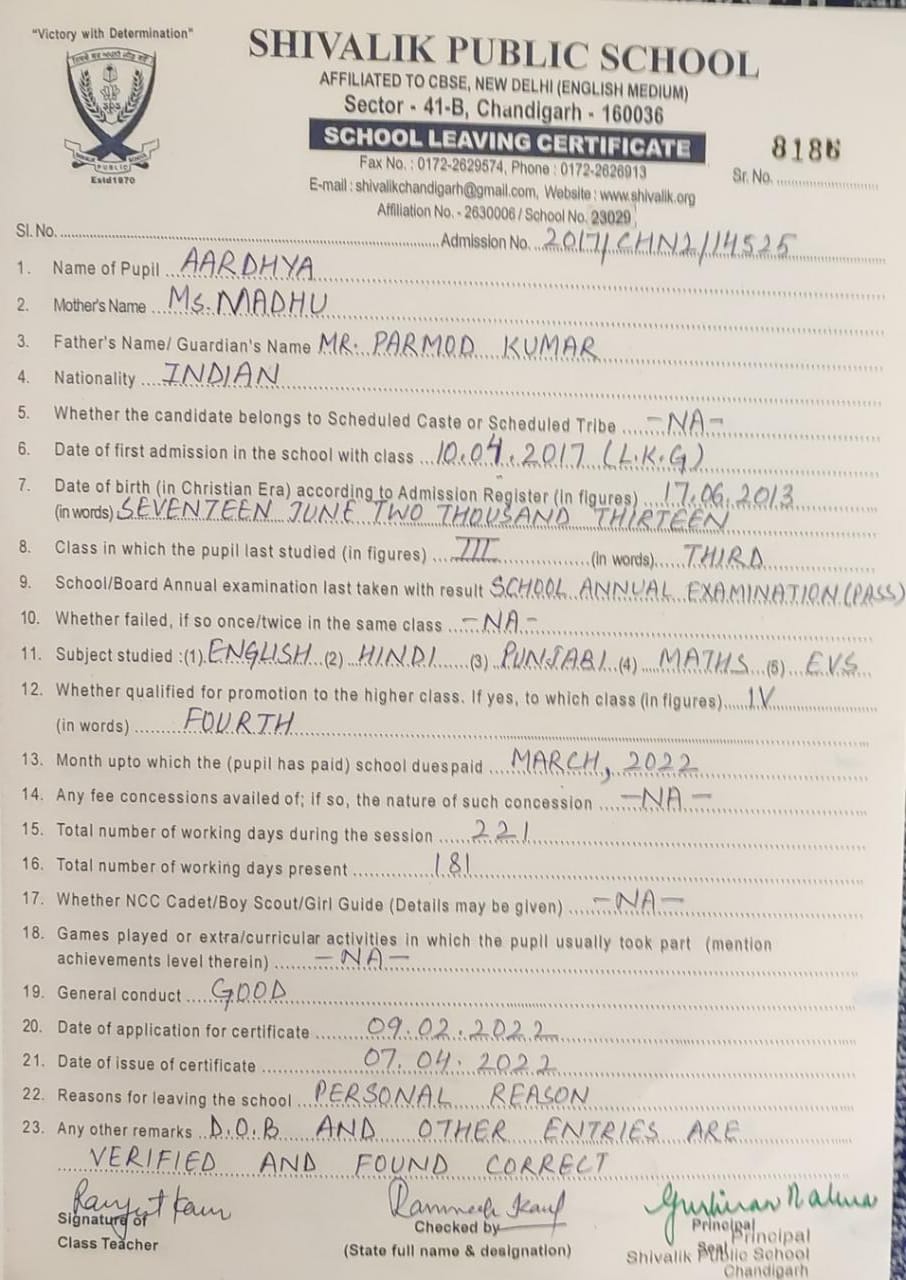 "Victory with Determination"
SHIVALIK PUBLIC SCHOOL
AFFILIATED TO CBSE, NEW DELHI (ENGLISH MEDIUM)
Sector - 41-B, Chandigarh - 160036
SCHOOL LEAVING CERTIFICATE
sps
SHIVALIK PUBLIC SCHOOL
Estd1970
Fax No. : 0172-2629574, Phone : 0172-2626913
E-mail : shivalikchandigarh@gmail.com, Website : www.shivalik.org
Affiliation No. - 2630006 / School No. 23029
8186
Sr. No. ........................
Sl. No. ........................ Admission No. 2017/CHN2/14525
1. Name of Pupil AARDHYA
2. Mother's Name Ms. MADHU
3. Father's Name/ Guardian's Name MR. PARMOD KUMAR
4. Nationality INDIAN
5. Whether the candidate belongs to Scheduled Caste or Scheduled Tribe -NA-
6. Date of first admission in the school with class 10.04.2017 (L.K.G)
7. Date of birth (in Christian Era) according to Admission Register (in figures) 17.06.2013
(in words) SEVENTEEN JUNE TWO THOUSAND THIRTEEN
8. Class in which the pupil last studied (in figures) III (in words) THIRD
9. School/Board Annual examination last taken with result SCHOOL ANNUAL EXAMINATION (PASS)
10. Whether failed, if so once/twice in the same class -NA-
11. Subject studied :(1) ENGLISH (2) HINDI (3) PUNJABI (4) MATHS (5) EVS
12. Whether qualified for promotion to the higher class. If yes, to which class (in figures) IV
(in words) FOURTH
13. Month upto which the (pupil has paid) school duespaid MARCH, 2022
14. Any fee concessions availed of; if so, the nature of such concession -NA-
15. Total number of working days during the session 221
16. Total number of working days present 181
17. Whether NCC Cadet/Boy Scout/Girl Guide (Details may be given) -NA-
18. Games played or extra/curricular activities in which the pupil usually took part (mention
achievements level therein) -NA-
19. General conduct GOOD
20. Date of application for certificate 09.02.2022
21. Date of issue of certificate 07.04.2022
22. Reasons for leaving the school PERSONAL REASON
23. Any other remarks D.O.B AND OTHER ENTRIES ARE
VERIFIED AND FOUND CORRECT
Ranjit Kaur
Signature of
Class Teacher
Kaur
Checked by
(State full name & designation)
Principal
Seal
Principal
Shivalik Public School
Chandigarh